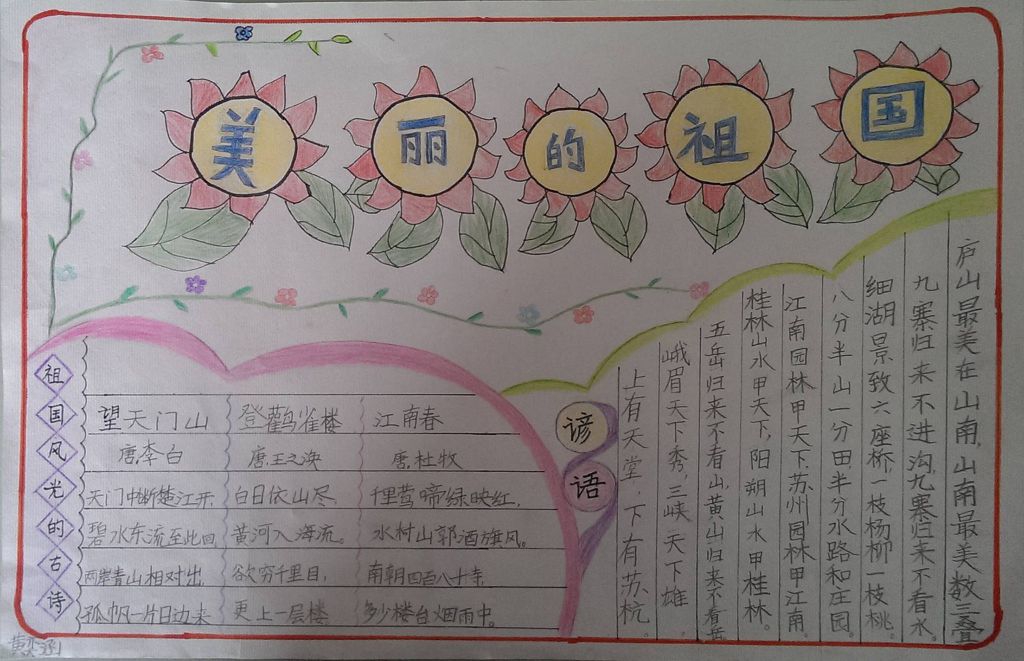 美丽的祖国
祖国风光的古诗
望天门山
唐,李白
天门中断楚江开,
碧水东流至此回,
两岸青山相对出,
孤帆一片日边来
登鹳雀楼
唐,王之涣
白日依山尽,
黄河入海流。
欲穷千里目,
更上一层楼
江南春
唐,杜牧
千里莺啼绿映红,
水村山郭酒旗风。
南朝四百八十寺,
多少楼台烟雨中。
谚语
庐山最美在山南,山南最美数三叠
九寨归来不进沟,九寨归来不看水。
细湖景致六座桥,一枝杨柳一枝桃。
八分半山一分田,半分水路和庄园。
江南园林甲天下,苏州园林甲江南。
桂林山水甲天下,阳朔山水甲桂林。
五岳归来不看山,黄山归来不看岳
峨眉天下秀,三峡天下雄
上有天堂,下有苏杭。